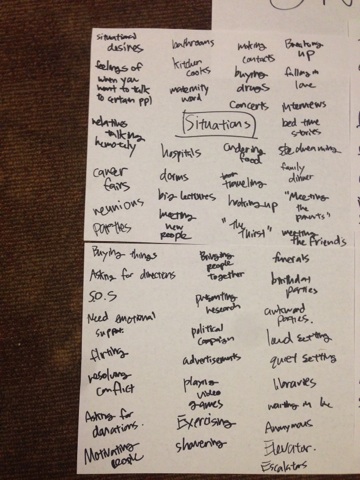 situational
desires
feelings of
when you
want to talk
to certain ppl
relatives
talking
remotely
career
fairs
reunions
parties
bathrooms
kitchen
cooks
maternity
ward
Situations
hospitals
dorms
big lectures
meeting
new
people
making
contacts
buying
drugs
concerts
ordering
food
traveling
hooking up
"The
Thirst"
Breaking
up
falling in
love
interviews
bed time
stories
family
dinner
"Meeting
the
parents"
meeting
the friends
Buying things
Asking for directions
S.O.S
Need emotional
support.
flirting
resolving
conflict
Asking for
donations.
Motivating
people
Bringing
people
together
presenting
research
political
campaign
advertisements
playing
video
games
Exercising
showering
funerals
birthday
parties
awkward
parties.
loud setting
quiet setting
libraries
waiting in line
Anonymous
Elevator.
Escalators